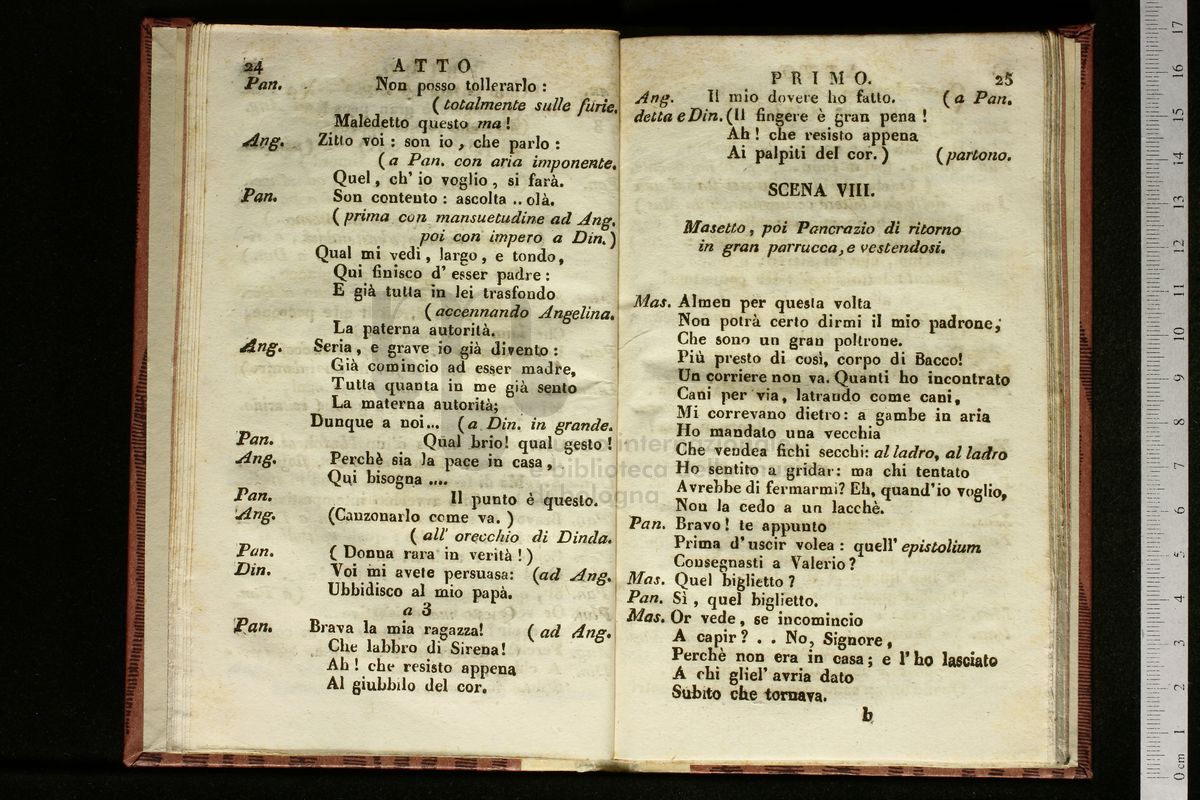 24 ATTO
Pan. Non posso tollerarlo :
( totalmente sulle furie.
Maledetto questo ma !
Ang. Zitto voi : son io , che parlo :
( a Pan. con aria imponente.
Quel , ch' io voglio , si farà.
Pan. Son contento : ascolta .. olà.
( prima con mansuetudine ad Ang.
poi con impero a Din. )
Qual mi vedi , largo , e tondo ,
Qui finisco d' esser padre :
E già tutta in lei trasfondo
( accennando Angelina.
La paterna autorità.
Ang. Seria , e grave io già divento :
Già comincio ad esser madre,
Tutta quanta in me già sento
La materna autorità;
Dunque a noi... ( a Din. in grande.
Pan. Qual brio! qual gesto !
Ang. Perchè sia la pace in casa ,
Qui bisogna ....
Pan. Il punto è questo.
Ang. (Canzonarlo come va. )
( all' orecchio di Dinda.
Pan. ( Donna rara in verità ! )
Din. Voi mi avete persuasa: (ad Ang.
Ubbidisco al mio papà.
a 3
Pan. Brava la mia ragazza! ( ad Ang.
Che labbro di Sirena!
Ah ! che resisto appena
Al giubbilo del cor.
PRIMO. 25
Ang. Il mio dovere ho fatto. ( a Pan.
detta e Din. (Il fingere è gran pena !
Ah ! che resisto appena
Ai palpiti del cor. ) (partono.
SCENA VIII.
Masetto , poi Pancrazio di ritorno
in gran parrucca, e vestendosi.
Mas. Almen per questa volta
Non potrà certo dirmi il mio padrone,
Che sono un gran poltrone.
Più presto di così, corpo di Bacco!
Un corriere non va. Quanti ho incontrato
Cani per via, latrando come cani,
Mi correvano dietro: a gambe in aria
Ho mandato una vecchia
Che vendea fichi secchi: al ladro, al ladro
Ho sentito a gridar: ma chi tentato
Avrebbe di fermarmi? Eh, quand'io voglio,
Non la cedo a un lacchè.
Pan. Bravo! te appunto
Prima d' uscir volea : quell' epistolium
Consegnasti a Valerio ?
Mas. Quel biglietto ?
Pan. Sì , quel biglietto.
Mas. Or vede , se incomincio
A capir ? . . No, Signore,
Perchè non era in casa ; e l' ho lasciato
A chi gliel' avria dato
Subito che tornava.
b